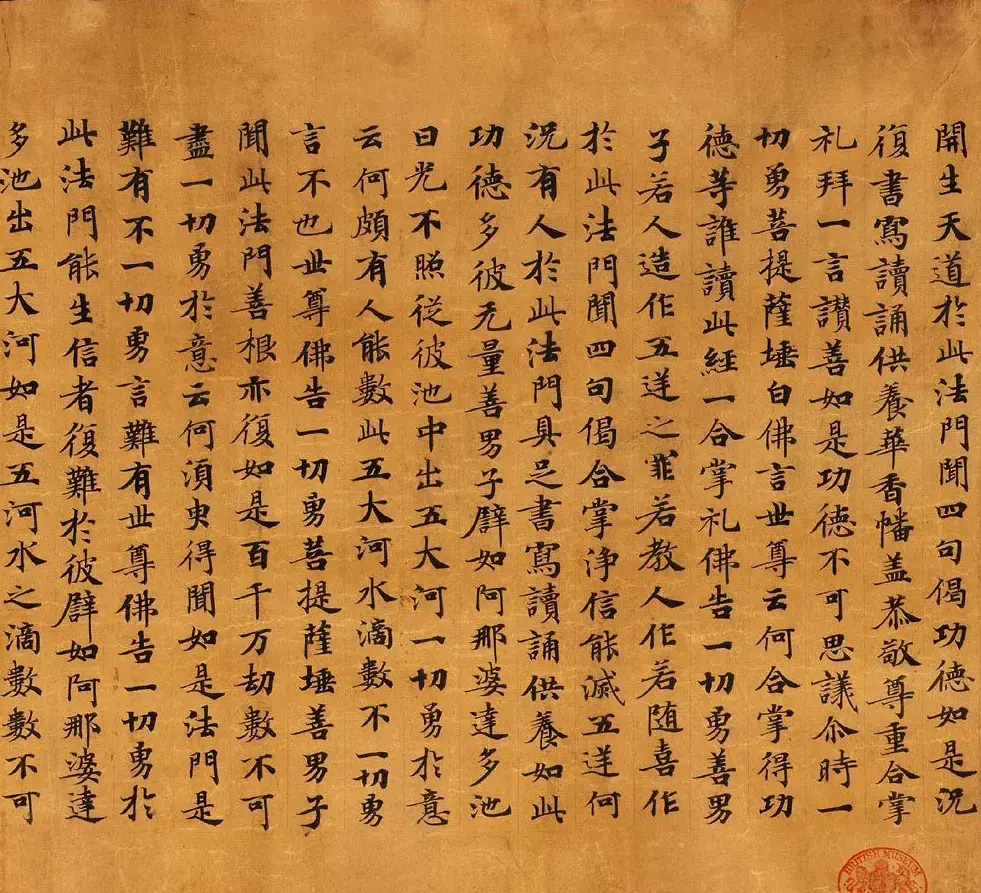 開生天道於此法門聞四句偈功德如是况
復書寫讀誦供養華香幡盖恭敬尊重合掌
礼拜一言讃善如是功德不可思議尒時一
切勇菩提薩埵白佛言世尊云何合掌得功
德等誰讀此經一合掌礼佛告一切勇善男
子若人造作五逆之罪若教人作若随喜作
於此法門聞四句偈合掌浄信能滅五逆何
况有人於此法門具足書寫讀誦供養如此
功德多彼无量善男子譬如阿那婆達多池
日光不照從彼池中出五大河一切勇於意
云何頗有人能數此五大河水滴數不一切勇
言不也世尊佛告一切勇菩提薩埵善男子
聞此法門善根亦復如是百千万劫數不可
盡一切勇於意云何湏臾得聞如是法門是
難有不一切勇言難有世尊佛告一切勇於
此法門能生信者復難於彼譬如阿那婆達
多池出五大河如是五河水之滴數數不可
BRITISH MUSEUM